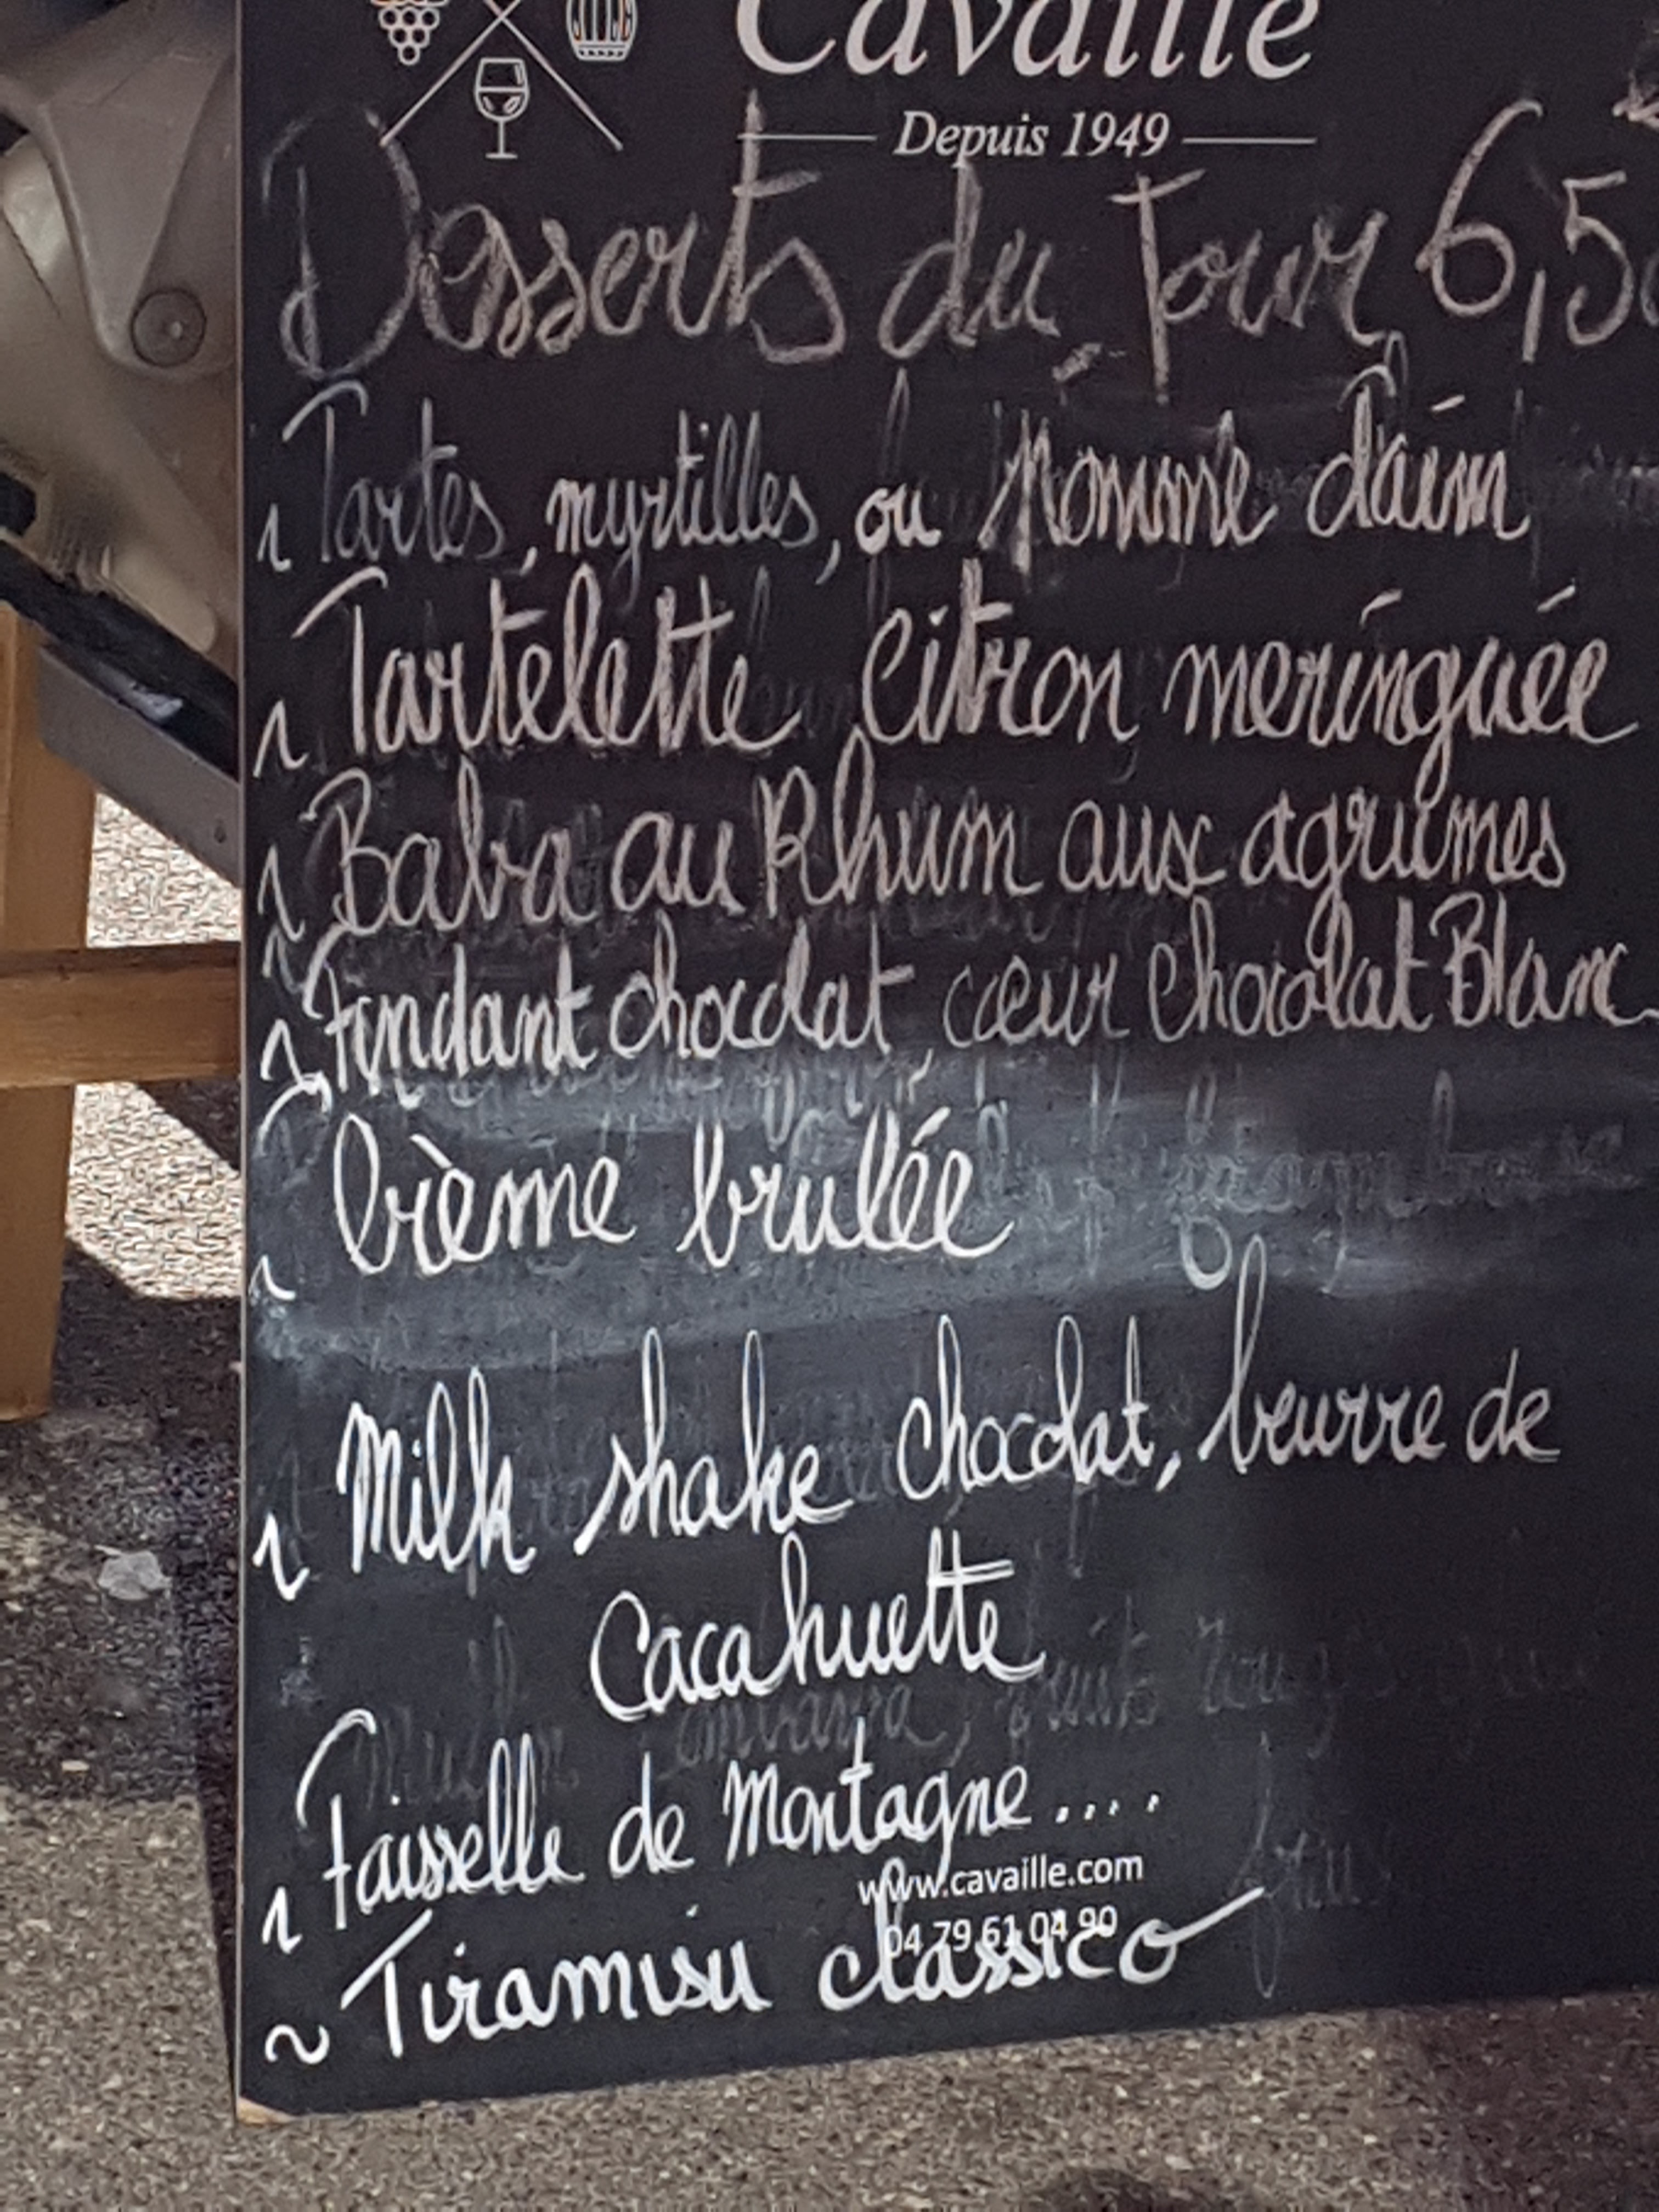 Cavaille
Depuis 1949
Desserts du Jour 6,5
~ Tartes, myrtilles, ou Pomme daim
~ Tartelette Citron meringuée
~ Baba au Rhum aux agrumes
~ Fondant chocolat, cœur chocolat Blanc
~ Crème brulée
~ Milk shake chocolat, beurre de
Cacahuette
~ Faisselle de Montagne....
www.cavaille.com
04 79 61 04 90
~ Tiramisu classico